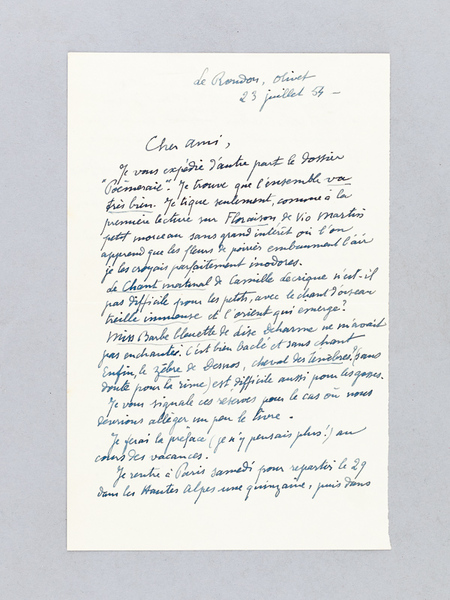 Le Rondon, Olivet
23 juillet 54 -
Cher ami,
Je vous expédie d'autre part le dossier
"Poèmeraie". Je trouve que l'ensemble va
très bien. Je tique seulement, comme à la
première lecture sur Floraison de Vio Martin
petit morceau sans grand intérêt où l'on
apprend que les fleurs de poiriers embaument l'air
je les croyais parfaitement inodores.
Le Chant matinal de Camille n'est-il
pas difficile pour les petits, avec le chant d'oiseau
treille immense et l'orient qui émerge?
Miss Barbe bleuette de Lise Deharme ne m'avait
pas enchantée. C'est bien baclé et sans chant
Enfin, le zèbre de Desnos, cheval des ténèbres? (sans
doute pour la rime) est difficile aussi pour les gosses.
Je vous signale ces réserves pour le cas où nous
devrions alléger un peu le livre.
Je ferai la préface (je n'y pensais plus!) au
cours des vacances.
Je rentre à Paris samedi pour repartir le 29
dans les Hautes Alpes une quinzaine, puis dans